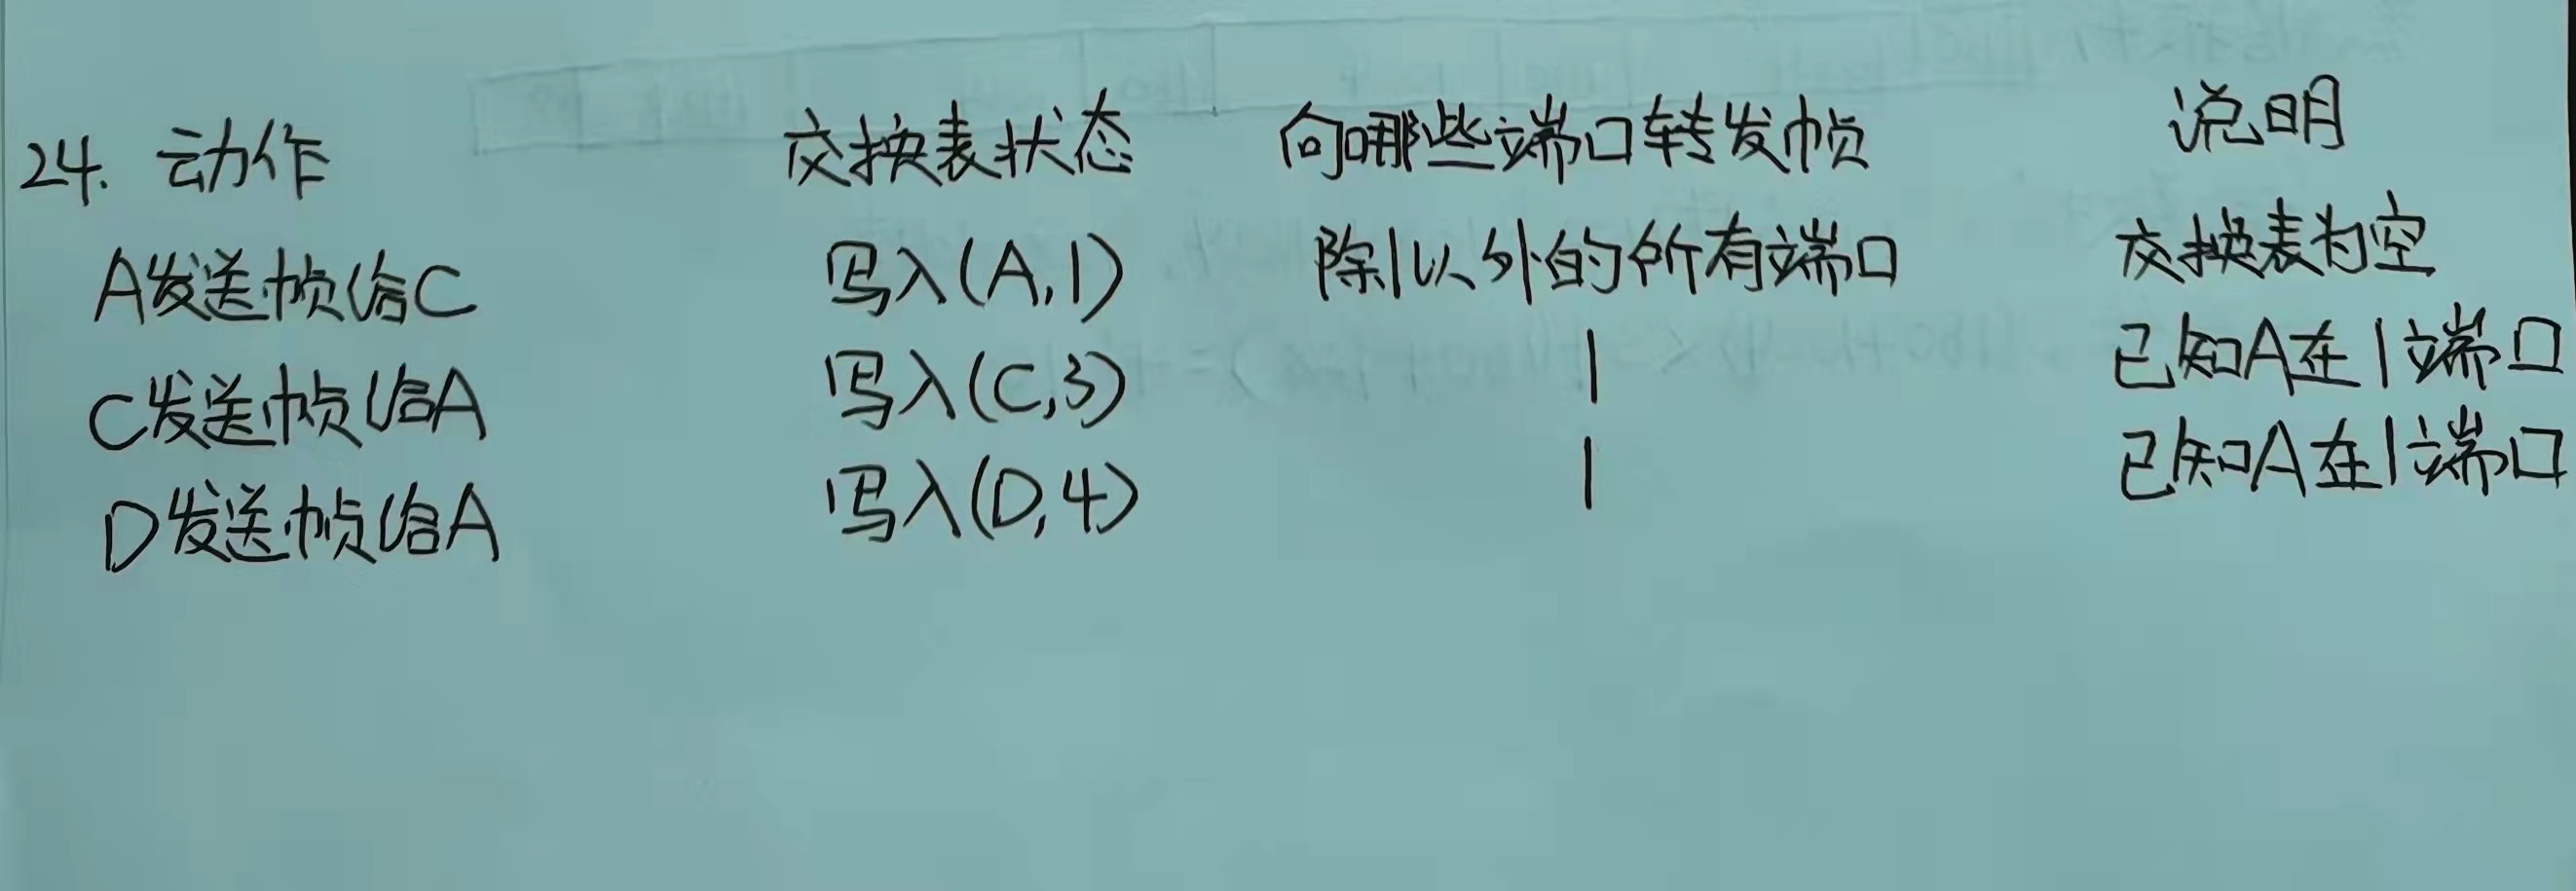 24. 动作 交换表状态 向哪些端口转发帧 说明
A发送帧给C 写入(A,1) 除1以外的所有端口 交换表为空
C发送帧给A 写入(C,3) 1 已知A在1端口
D发送帧给A 写入(D,4) 1 已知A在1端口